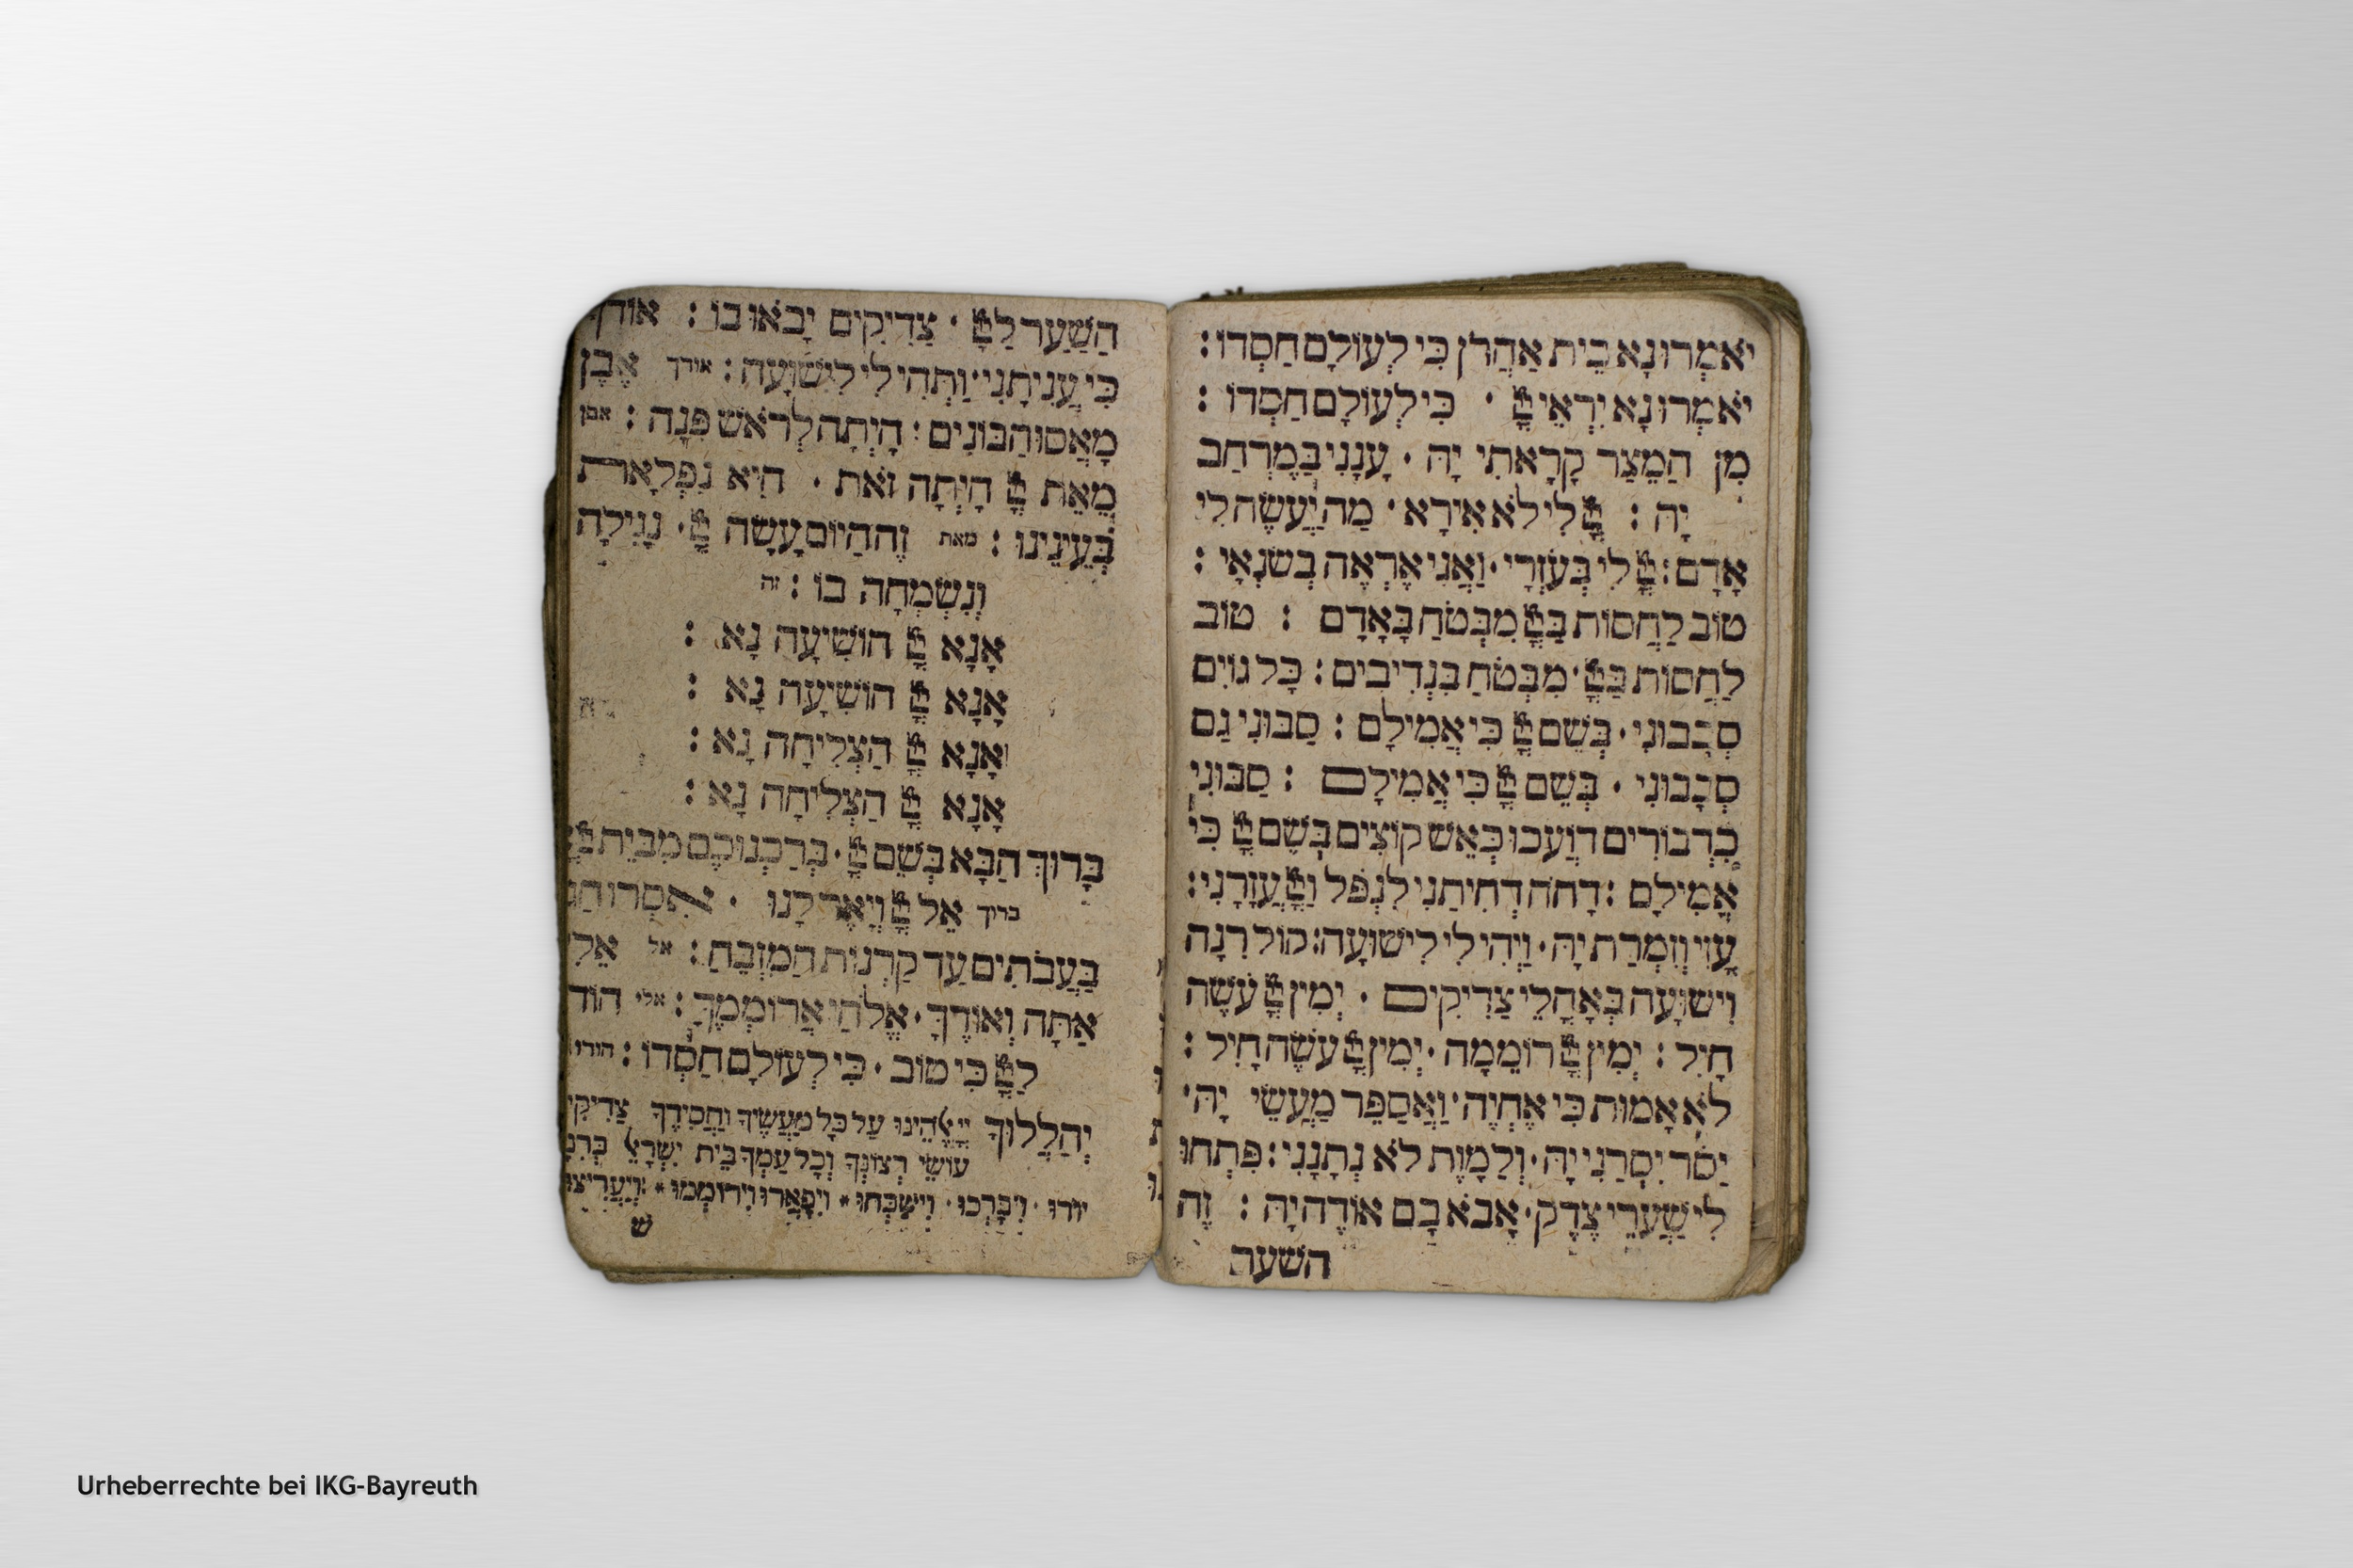 יֹאמְרוּ נָא בֵית אַהֲרֹן כִּי לְעוֹלָם חַסְדּוֹ :
יֹאמְרוּ נָא יִרְאֵי יְיָ · כִּי לְעוֹלָם חַסְדּוֹ :
מִן הַמֵּצַר קָרָאתִי יָהּ · עָנָנִי בַמֶּרְחַב
יָהּ : יְיָ לִי לֹא אִירָא · מַה יַּעֲשֶׂה לִי
אָדָם : יְיָ לִי בְּעֹזְרָי · וַאֲנִי אֶרְאֶה בְשׂנְאָי :
טוֹב לַחֲסוֹת בַּיְיָ מִבְּטֹחַ בָּאָדָם : טוֹב
לַחֲסוֹת בַּיְיָ · מִבְּטֹחַ בִּנְדִיבִים : כָּל גּוֹיִם
סְבָבוּנִי · בְּשֵׁם יְיָ כִּי אֲמִילָם : סַבּוּנִי גַם
סְבָבוּנִי · בְּשֵׁם יְיָ כִּי אֲמִילָם : סַבּוּנִי
כִדְבוֹרִים דּוֹעֲכוּ כְּאֵשׁ קוֹצִים בְּשֵׁם יְיָ כִּי
אֲמִילָם : דָּחֹה דְחִיתַנִי לִנְפֹּל וַיְיָ עֲזָרָנִי :
עָזִּי וְזִמְרַת יָהּ · וַיְהִי לִי לִישׁוּעָה : קוֹל רִנָּה
וִישׁוּעָה בְּאָהֳלֵי צַדִּיקִים · יְמִין יְיָ עֹשָׂה
חָיִל : יְמִין יְיָ רוֹמֵמָה · יְמִין יְיָ עֹשָׂה חָיִל :
לֹא אָמוּת כִּי אֶחְיֶה · וַאֲסַפֵּר מַעֲשֵׂי יָהּ ·
יַסֹּר יִסְּרַנִּי יָּהּ · וְלַמָּוֶת לֹא נְתָנָנִי : פִּתְחוּ
לִי שַׁעֲרֵי צֶדֶק · אָבֹא בָם אוֹדֶה יָהּ : זֶה
השער
הַשַּׁעַר לַיְיָ · צַדִּיקִים יָבֹאוּ בוֹ : אוֹדְךָ
כִּי עֲנִיתָנִי · וַתְּהִי לִי לִישׁוּעָה : אודך אֶבֶן
מָאֲסוּ הַבּוֹנִים : הָיְתָה לְרֹאשׁ פִּנָּה : אבן
מֵאֵת יְיָ הָיְתָה זֹּאת · הִיא נִפְלָאת
בְּעֵינֵינוּ : מאת זֶה הַיּוֹם עָשָׂה יְיָ · נָגִילָה
וְנִשְׂמְחָה בוֹ : זה
אָנָא יְיָ הוֹשִׁיעָה נָא :
אָנָא יְיָ הוֹשִׁיעָה נָא :
אָנָא יְיָ הַצְלִיחָה נָא :
אָנָא יְיָ הַצְלִיחָה נָא :
בָּרוּךְ הַבָּא בְּשֵׁם יְיָ · בְּרַכְנוּכֶם מִבֵּית יְיָ
ברוך אֵל יְיָ וַיָּאֶר לָנוּ · אִסְרוּ חַג
בַּעֲבֹתִים עַד קַרְנוֹת הַמִּזְבֵּחַ : אל אֵלִי
אַתָּה וְאוֹדֶךָּ · אֱלֹהַי אֲרוֹמְמֶךָּ : אלי הוֹדוּ
לַיְיָ כִּי טוֹב · כִּי לְעוֹלָם חַסְדּוֹ : הודו
יְהַלְלוּךָ יְיָ אֱלֹהֵינוּ עַל כָּל מַעֲשֶׂיךָ וַחֲסִידֶךָ צַדִּיקִי
עוֹשֵׂי רְצוֹנֶךָ וְכָל עַמְּךָ בֵּית יִשְׂרָאֵל בְּרִנָּ
יוֹדוּ · וִיבָרְכוּ · וִישַׁבְּחוּ * וִיפָאֲרוּ וִירוֹמְמוּ * וְיַעֲרִיצוּ
ש
Urheberrechte bei IKG-Bayreuth